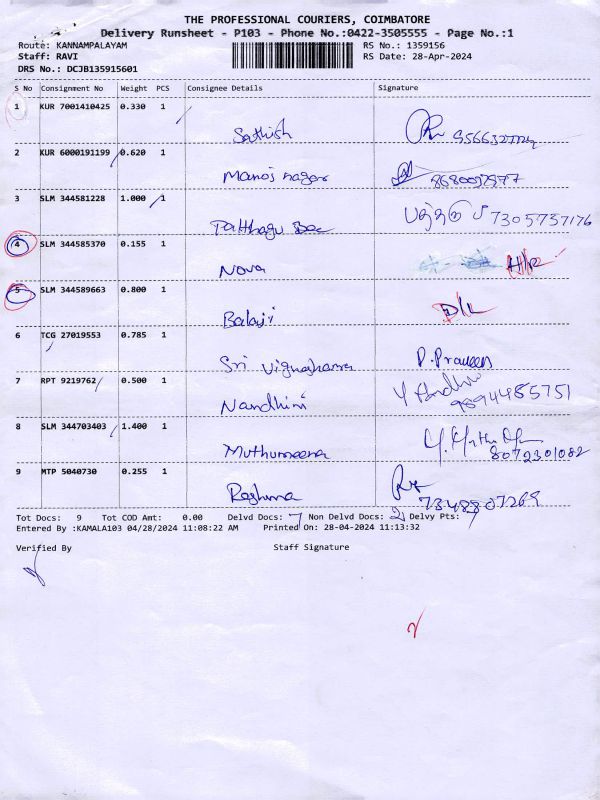 THE PROFESSIONAL COURIERS, COIMBATORE
Delivery Runsheet - P103 - Phone No.:0422-3505555 - Page No.:1
Route: KANNAMPALAYAM RS No.: 1359156
Staff: RAVI RS Date: 28-Apr-2024
DRS No.: DCJB135915601
S No Consignment No Weight PCS Consignee Details Signature
1 KUR 7001410425 0.330 1
Sathish
2 KUR 6000191199 0.620 1
Manoj nagar 8680097977
3 SLM 344581228 1.000 1
7305737176
4 SLM 344585370 0.155 1
Nova
5 SLM 344589663 0.800 1
Balaji D/L
6 TCG 27019553 0.785 1
Sri P.Praveen
7 RPT 9219762 0.500 1
Nandhini 9894485751
8 SLM 344703403 1.400 1
Muthumeena 8072301082
9 MTP 5040730 0.255 1
Reshma 7348807269
Tot Docs: 9 Tot COD Amt: 0.00 Delvd Docs: 7 Non Delvd Docs: 2 Delvy Pts:
Entered By :KAMALA103 04/28/2024 11:08:22 AM Printed On: 28-04-2024 11:13:32
Verified By Staff Signature